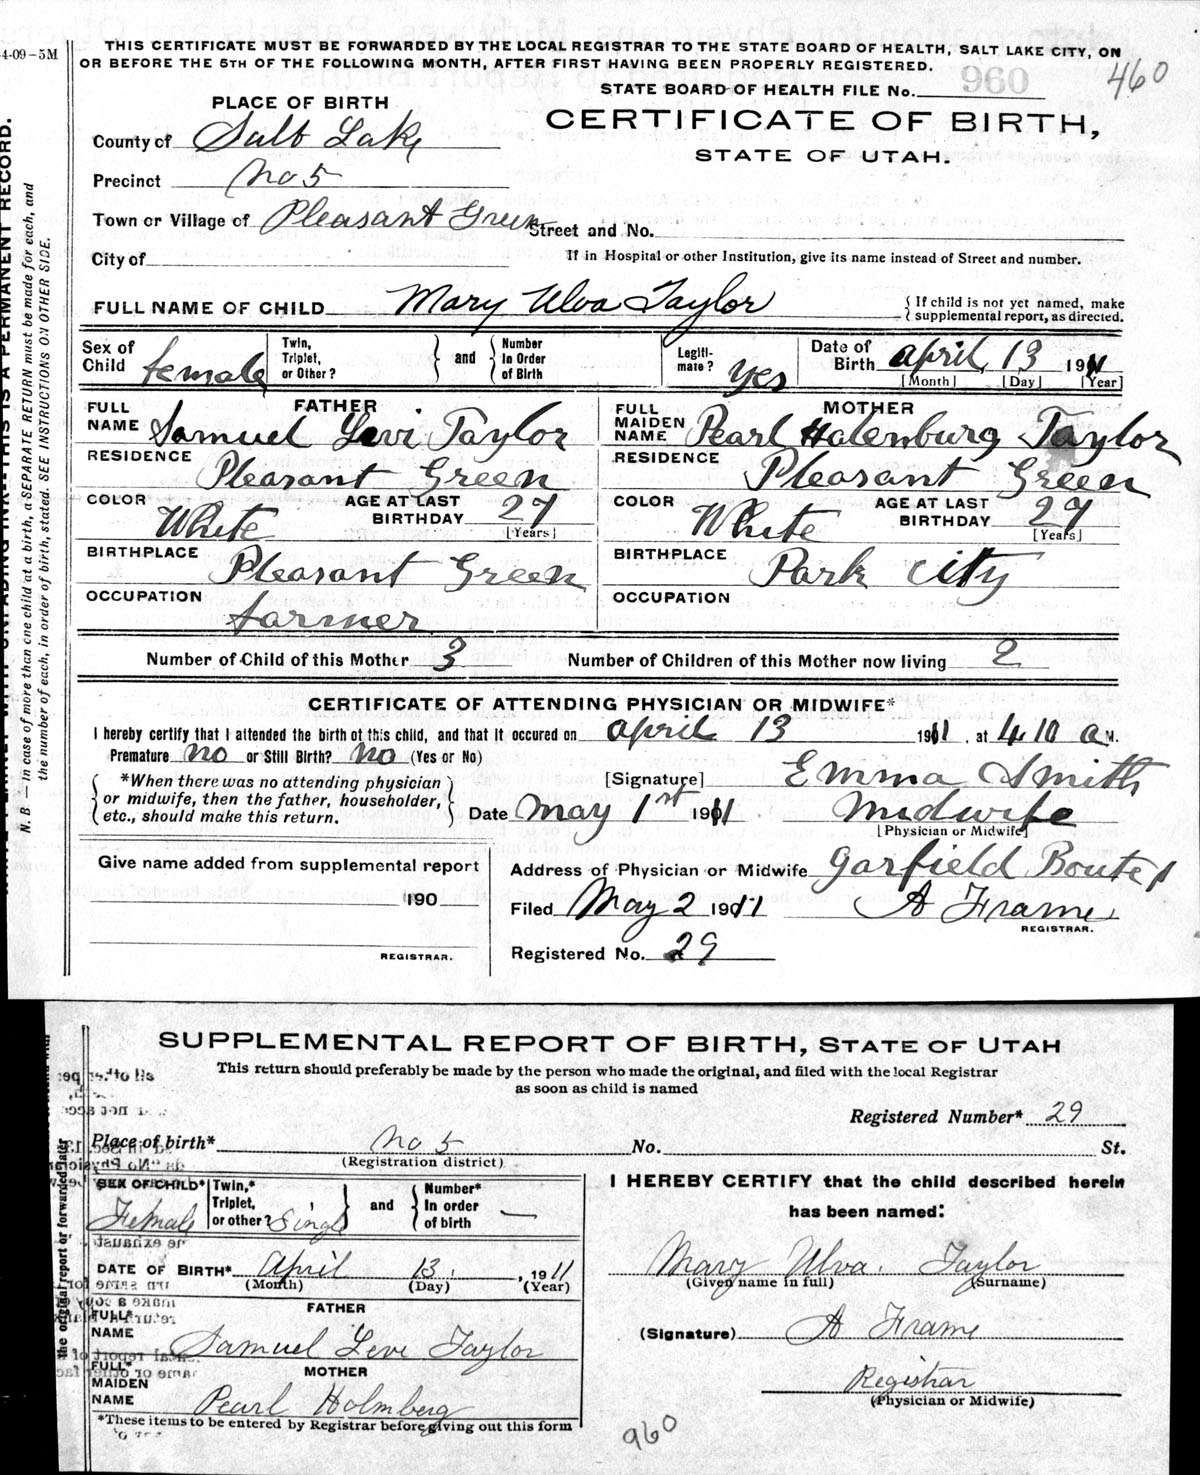 4-09-5M
THIS CERTIFICATE MUST BE FORWARDED BY THE LOCAL REGISTRAR TO THE STATE BOARD OF HEALTH, SALT LAKE CITY, ON
OR BEFORE THE 5TH OF THE FOLLOWING MONTH, AFTER FIRST HAVING BEEN PROPERLY REGISTERED.
STATE BOARD OF HEALTH FILE No. 960 460
PLACE OF BIRTH
CERTIFICATE OF BIRTH,
STATE OF UTAH.
County of Salt Lake
Precinct No 5
Town or Village of Pleasant Green Street and No.
City of If in Hospital or other Institution, give its name instead of Street and number.
FULL NAME OF CHILD Mary Ulva Taylor { If child is not yet named, make supplemental report, as directed.
Sex of Child female Twin, Triplet, or Other? } and { Number in Order of Birth Legitimate? Yes Date of Birth April 13 1911
[Month] [Day] [Year]
FATHER MOTHER
FULL NAME Samuel Levi Taylor FULL MAIDEN NAME Pearl Holenburg Taylor
RESIDENCE Pleasant Green RESIDENCE Pleasant Green
COLOR White AGE AT LAST BIRTHDAY 27 [Years] COLOR White AGE AT LAST BIRTHDAY 29 [Years]
BIRTHPLACE Pleasant Green BIRTHPLACE Park City
OCCUPATION farmer OCCUPATION
Number of Child of this Mother 3 Number of Children of this Mother now living 2
CERTIFICATE OF ATTENDING PHYSICIAN OR MIDWIFE*
I hereby certify that I attended the birth of this child, and that it occured on April 13 1911, at 4 10 a M.
Premature no or Still Birth? no (Yes or No)
*When there was no attending physician or midwife, then the father, householder, etc., should make this return.
[Signature] Emma Smith
Date May 1st 1911 Midwife
[Physician or Midwife]
Give name added from supplemental report
190
REGISTRAR.
Address of Physician or Midwife Garfield Route 1
Filed May 2 1911 A Frame
REGISTRAR.
Registered No. 29
N. B. — In case of more than one child at a birth, a SEPARATE RETURN must be made for each, and
the number of each, in order of birth, stated. SEE INSTRUCTIONS ON OTHER SIDE.
SUPPLEMENTAL REPORT OF BIRTH, STATE OF UTAH
This return should preferably be made by the person who made the original, and filed with the local Registrar
as soon as child is named
Registered Number* 29
Place of birth* No 5 No. St.
(Registration district)
SEX OF CHILD* Female Twin,* Triplet, or other? Single } and { Number* In order of birth —
DATE OF BIRTH* April 13, 1911
(Month) (Day) (Year)
FATHER
FULL* NAME Samuel Levi Taylor
MOTHER
FULL* MAIDEN NAME Pearl Holmberg
*These items to be entered by Registrar before giving out this form
I HEREBY CERTIFY that the child described herein
has been named:
Mary Ulva. Taylor
(Given name in full) (Surname)
(Signature) A Frame
Registrar
(Physician or Midwife)
960